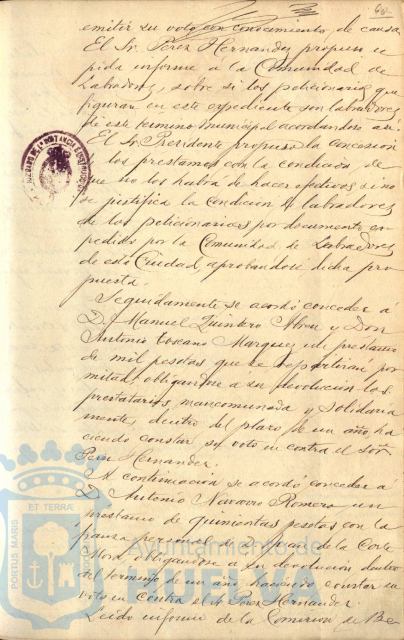 emitir su voto con conocimiento de causa
El Sr. Perez Hernandez propuso se
pida informe á la Comunidad de
Labradores, sobre si los peticionarios que
figuran en este expediente son labradores
de este termino municipal acordandose asi.
El Sr. Presidente propuso la concesion
de los prestamos con la condicion de
que no los habrá de hacer efectivos si no
se justifica la condicion de labradores
de los peticionarios por documento ex-
pedido por la Comunidad de Labradores
de esta Ciudad, aprobandose dicha pro
puesta.
Seguidamente se acordó conceder á
D. Manuel Quintero y Don
Antonio Toscano Marquez un prestamo
de mil pesetas que se repartiran por
mitad, obligandose a su devolucion los
prestatarios mancomunada y solidaria
mente, dentro del plazo de un año, ha
ciendo constar su voto en contra el Sor.
Perez Hernandez.
A continuacion se acordó conceder á
D. Antonio Navarro Romero un
prestamo de quinientas pesetas con la
fianza personal de de la Corte
obligandose a su devolucion dentro
del termino de un año haciendo constar su
voto en contra el Sr Perez Hernandez.
Leido informe de la Comision de Be-
PORTUS MARIS ET TERRAE
Ayuntamiento de
HUELVA